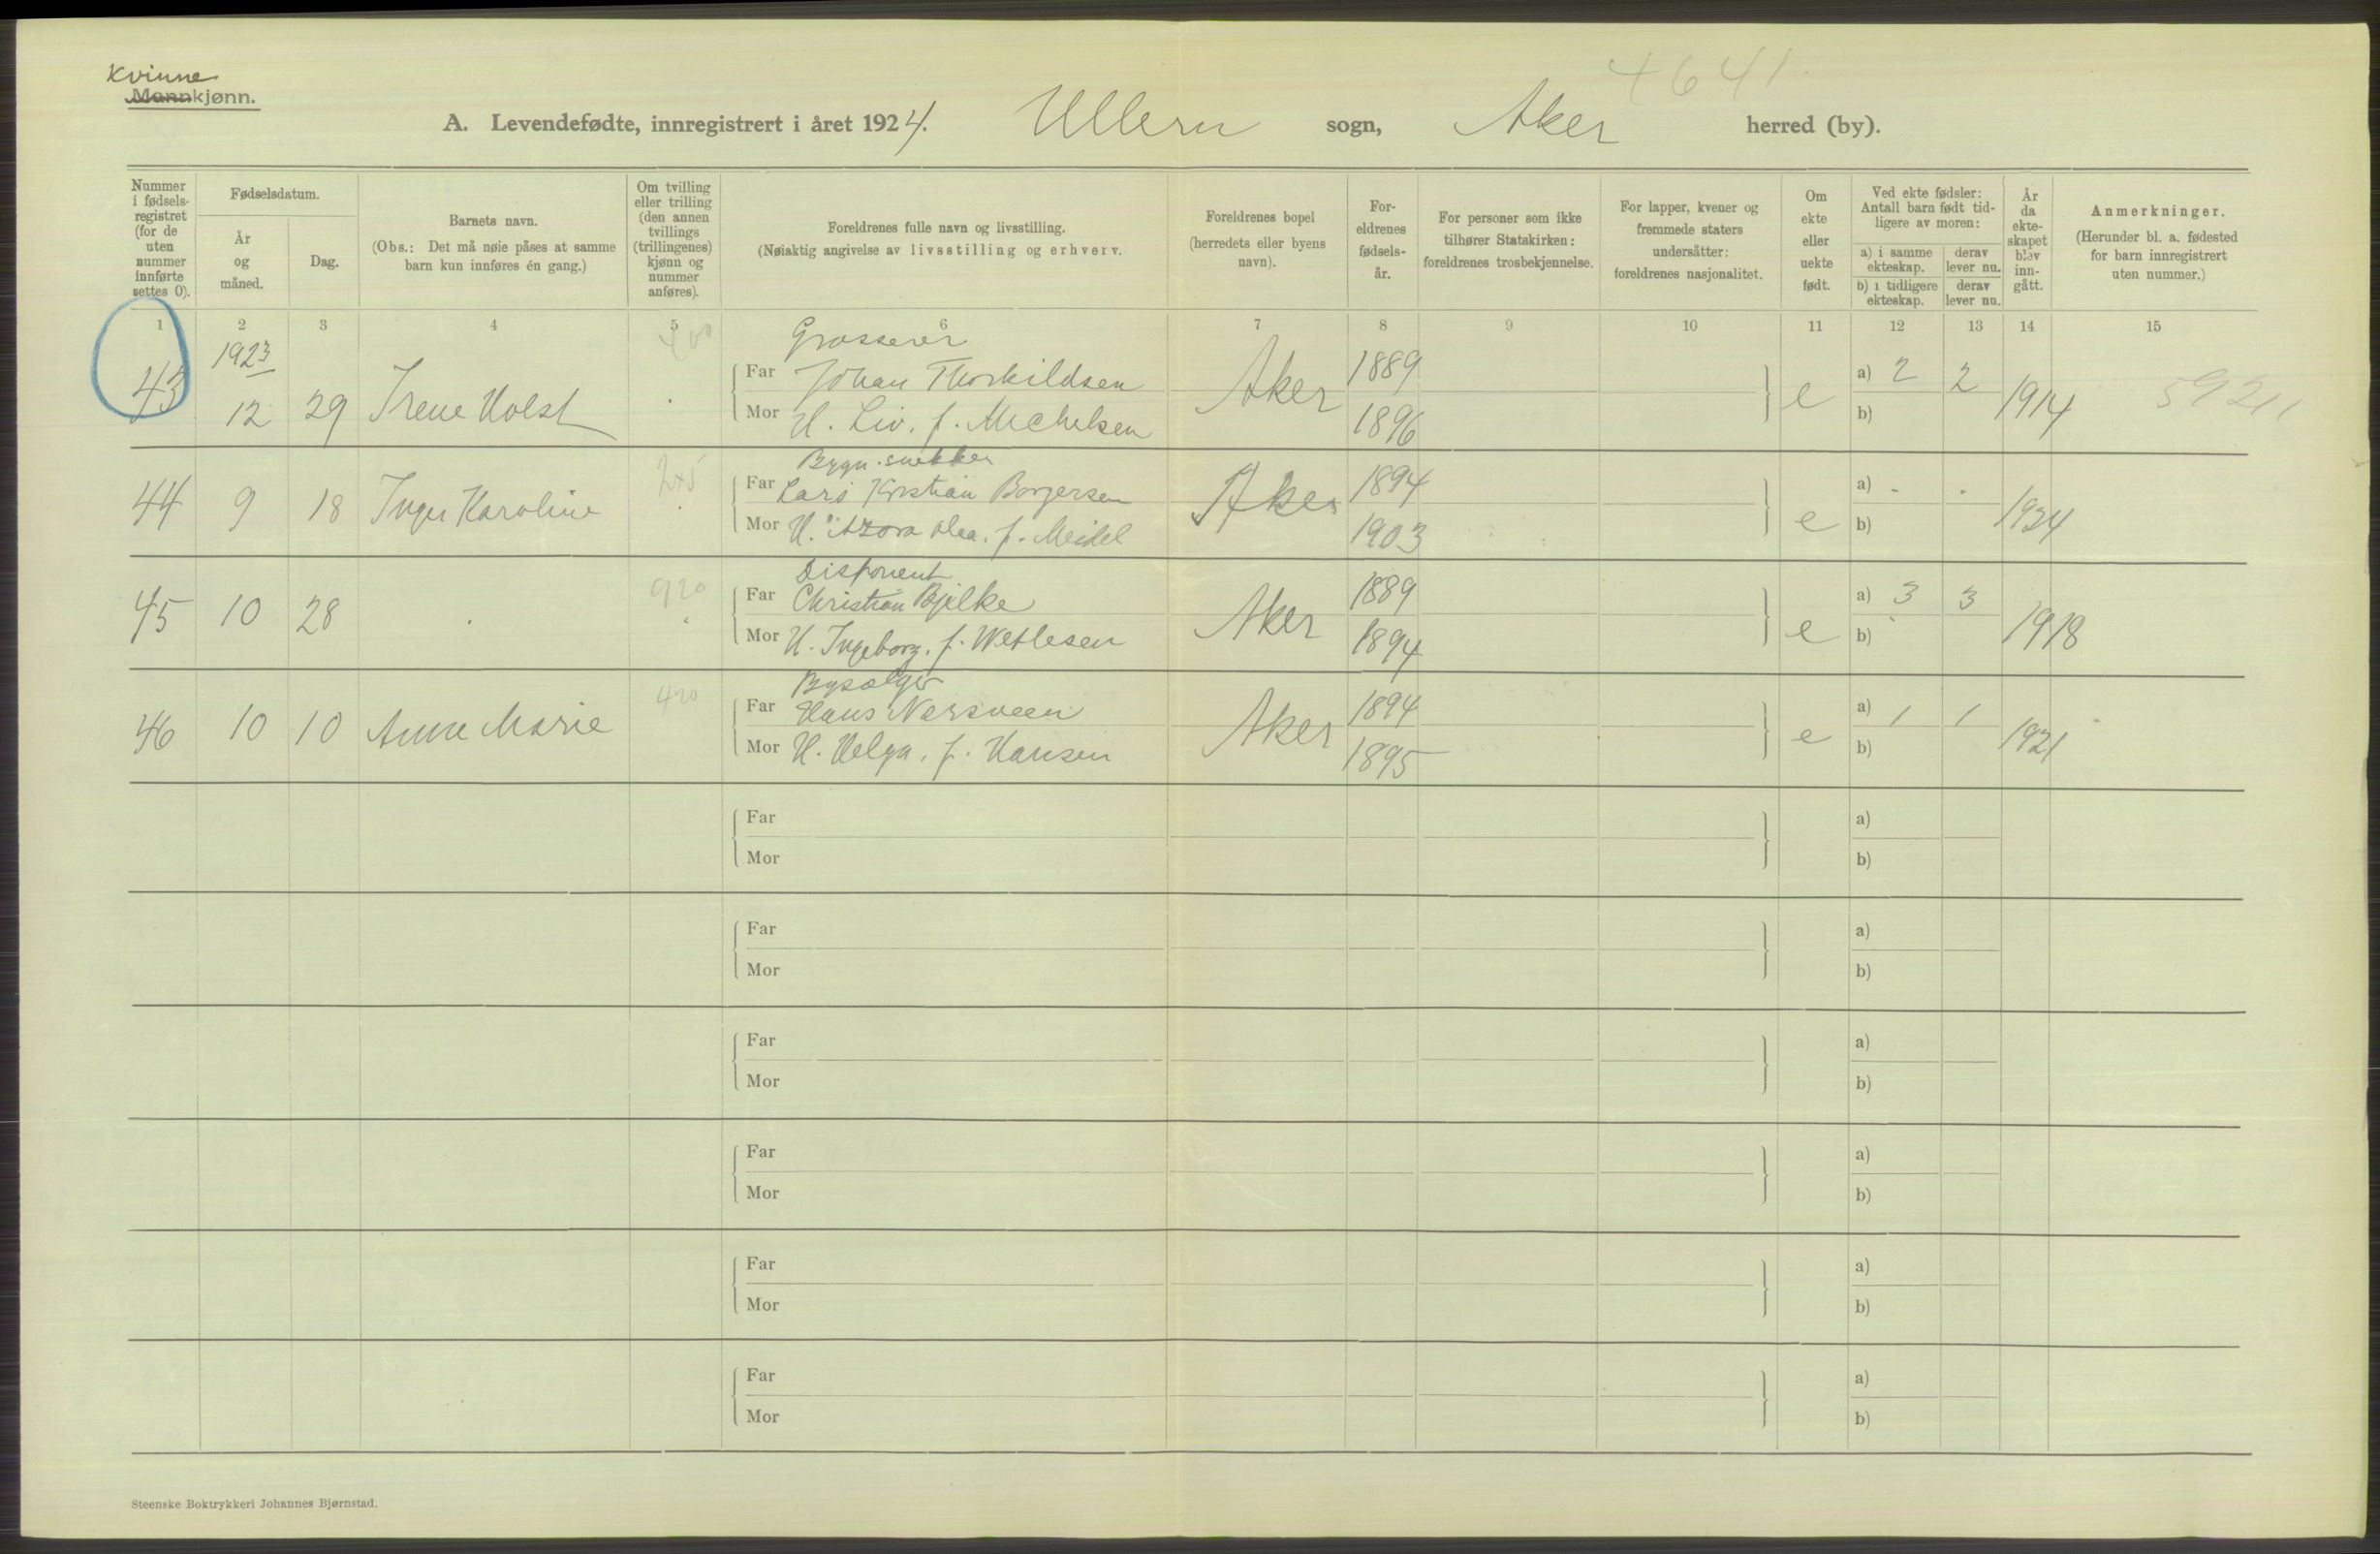 Kvinne
Mannkjønn.
4641.
A. Levendefødte, innregistrert i året 1924. Ullern sogn, Aker herred (by).
Nummer i fødsels-registret (for de uten nummer innførte settes 0).
Fødselsdatum.
År og måned.
Dag.
Barnets navn.
(Obs.: Det må nøie påses at samme barn kun innføres én gang.)
Om tvilling eller trilling (den annen tvillings (trillingenes) kjønn og nummer anføres).
Foreldrenes fulle navn og livsstilling.
(Nøiaktig angivelse av livsstilling og erhverv.
Foreldrenes bopel (herredets eller byens navn).
For-eldrenes fødsels-år.
For personer som ikke tilhører Statskirken: foreldrenes trosbekjennelse.
For lapper, kvener og fremmede staters undersåtter: foreldrenes nasjonalitet.
Om ekte eller uekte født.
Ved ekte fødsler: Antall barn født tid-ligere av moren:
a) i samme ekteskap.
derav lever nu.
b) i tidligere ekteskap.
derav lever nu.
År da ekte-skapet blev inn-gått.
Anmerkninger.
(Herunder bl. a. fødested for barn innregistrert uten nummer.)
1 2 3 4 5 6 7 8 9 10 11 12 13 14 15
1923 400 Grosserer
43 12 29 Irene Holst Far Johan Thorkildsen Aker 1889 e a) 2 2 1914
Mor H. Liv. f. Michelsen 1896 b)
Bygn.snekker
44 9 18 Inger Karoline Far Lars Kristian Borgersen Aker 1894 e a) - . 1924
Mor H. Azora Olea. f. Meidel 1903 b)
920 Disponent
45 10 28 . Far Christian Bjelke Aker 1889 e a) 3 3 1918
Mor H. Ingeborg. f. Wetlesen 1894 b)
420
46 10 10 Anne Marie Far Hans Nersveen Aker 1894 e a) 1 1 1921
Mor H. Helga. f. Hansen 1895 b)
Far a)
Mor b)
Far a)
Mor b)
Far a)
Mor b)
Far a)
Mor b)
Far a)
Mor b)
Far a)
Mor b)
Steenske Boktrykkeri Johannes Bjørnstad.